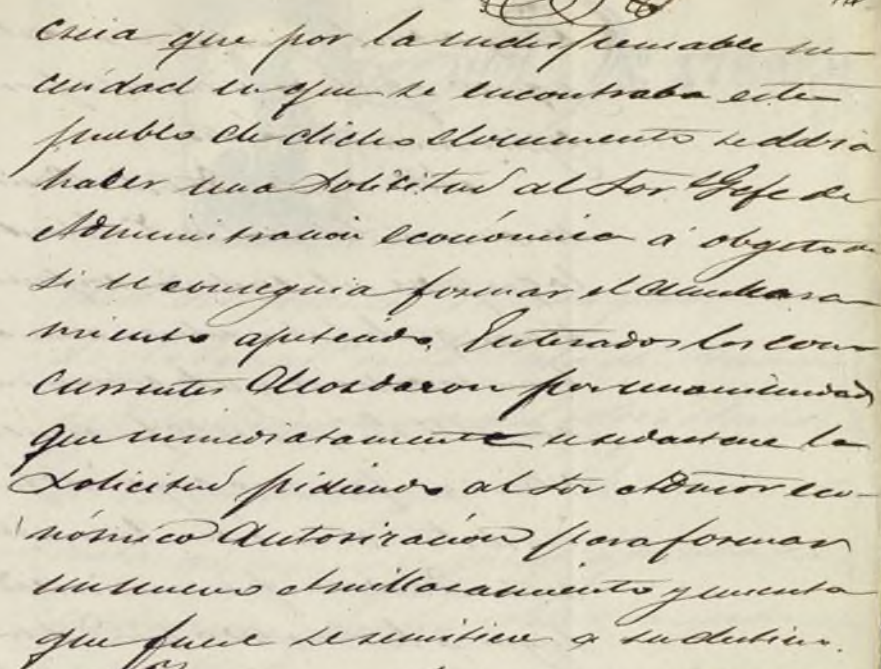 creia que por la indispensable ne
cesidad en que se encontraba este
pueblo de dicho documento se debia
hacer una Solicitud al Sor Gefe de
Administracion económica á obgeto de
si se conseguia formar el Amillara
miento apetecido. Enterados los con
currentes Acordaron por unanimidad
que inmediatamente se redactase la
Solicitud pidiendo al Sor Admor eco-
nómico Autorizacion para formar
un nuevo Amillaramiento y
que fuese se remitiese a su destino.